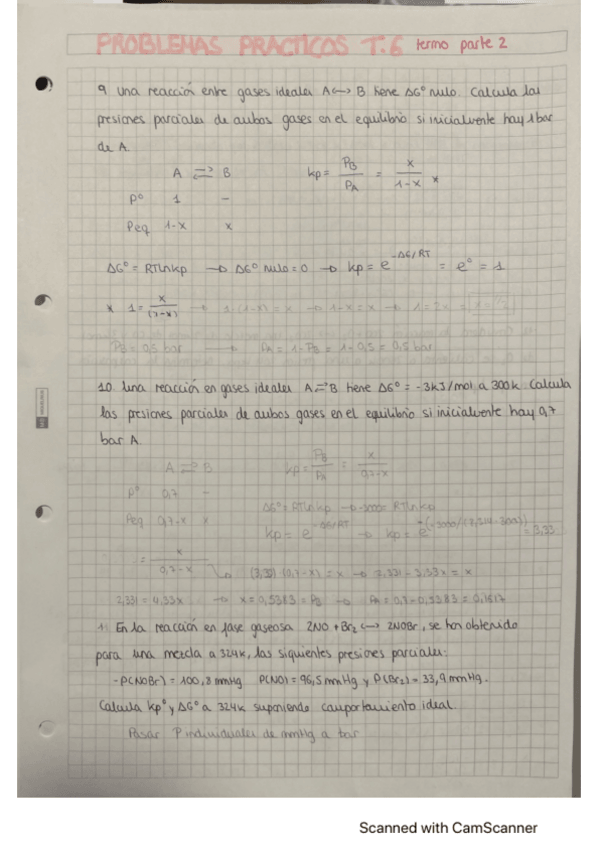 PROBLEMAS PRACTICOS T.6 termo parte 2
9. Una reacción entre gases ideales A⟷B tiene ΔG° nulo. Calcula las
presiones parciales de ambos gases en el equilibrio si inicialmente hay 1 bar
de A.
A ⇌ B kp = PB/PA = x/1-x *
P° 1 -
Peq 1-x x
ΔG° = RTlnkp → ΔG° nulo = 0 → kp = e^-ΔG/RT = e° = 1
* 1 = x/(1-x) → 1·(1-x) = x → 1-x = x → 1 = 2x = x = 1/2
PB = 0,5 bar → PA = 1-PB = 1-0,5 = 0,5 bar
10. Una reacción en gases ideales A⇌B tiene ΔG° = -3kJ/mol a 300k. Calcula
las presiones parciales de ambos gases en el equilibrio si inicialmente hay 0,7
bar A.
A ⇌ B kp = PB/PA = x/0,7-x
P° 0,7 -
ΔG° = RTlnkp → -3000 = RTlnkp
Peq 0,7-x x
kp = e^-ΔG/RT → kp = = 3,33
= x/0,7-x → (3,33)(0,7-x) = x → 2,331-3,33x = x
2,331 = 4,33x → x = 0,5383 = PB → PA = 0,7-0,5383 = 0,1617
1. En la reacción en fase gaseosa 2NO + Br2 ⟷ 2NOBr, se han obtenido
para una mezcla a 324k, las siguientes presiones parciales:
-P(NOBr) = 100,8 mmHg P(NO) = 96,5 mmHg y P(Br2) = 33,9 mmHg.
Calcula kp° y ΔG° a 324k suponiendo comportamiento ideal.
Pasar P individuales de mmHg a bar
Scanned with CamScanner